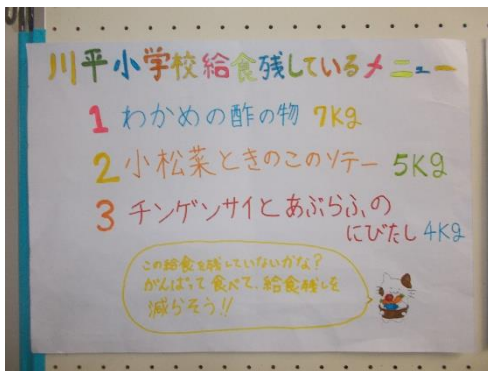 川平小学校給食残しているメニュー
1 わかめの酢の物 7Kg
2 小松菜ときのこのソテー 5Kg
3 チンゲンサイとあぶらふの
にびたし 4Kg
この給食を残していないかな?
がんばって食べて、給食残しを
減らそう!!